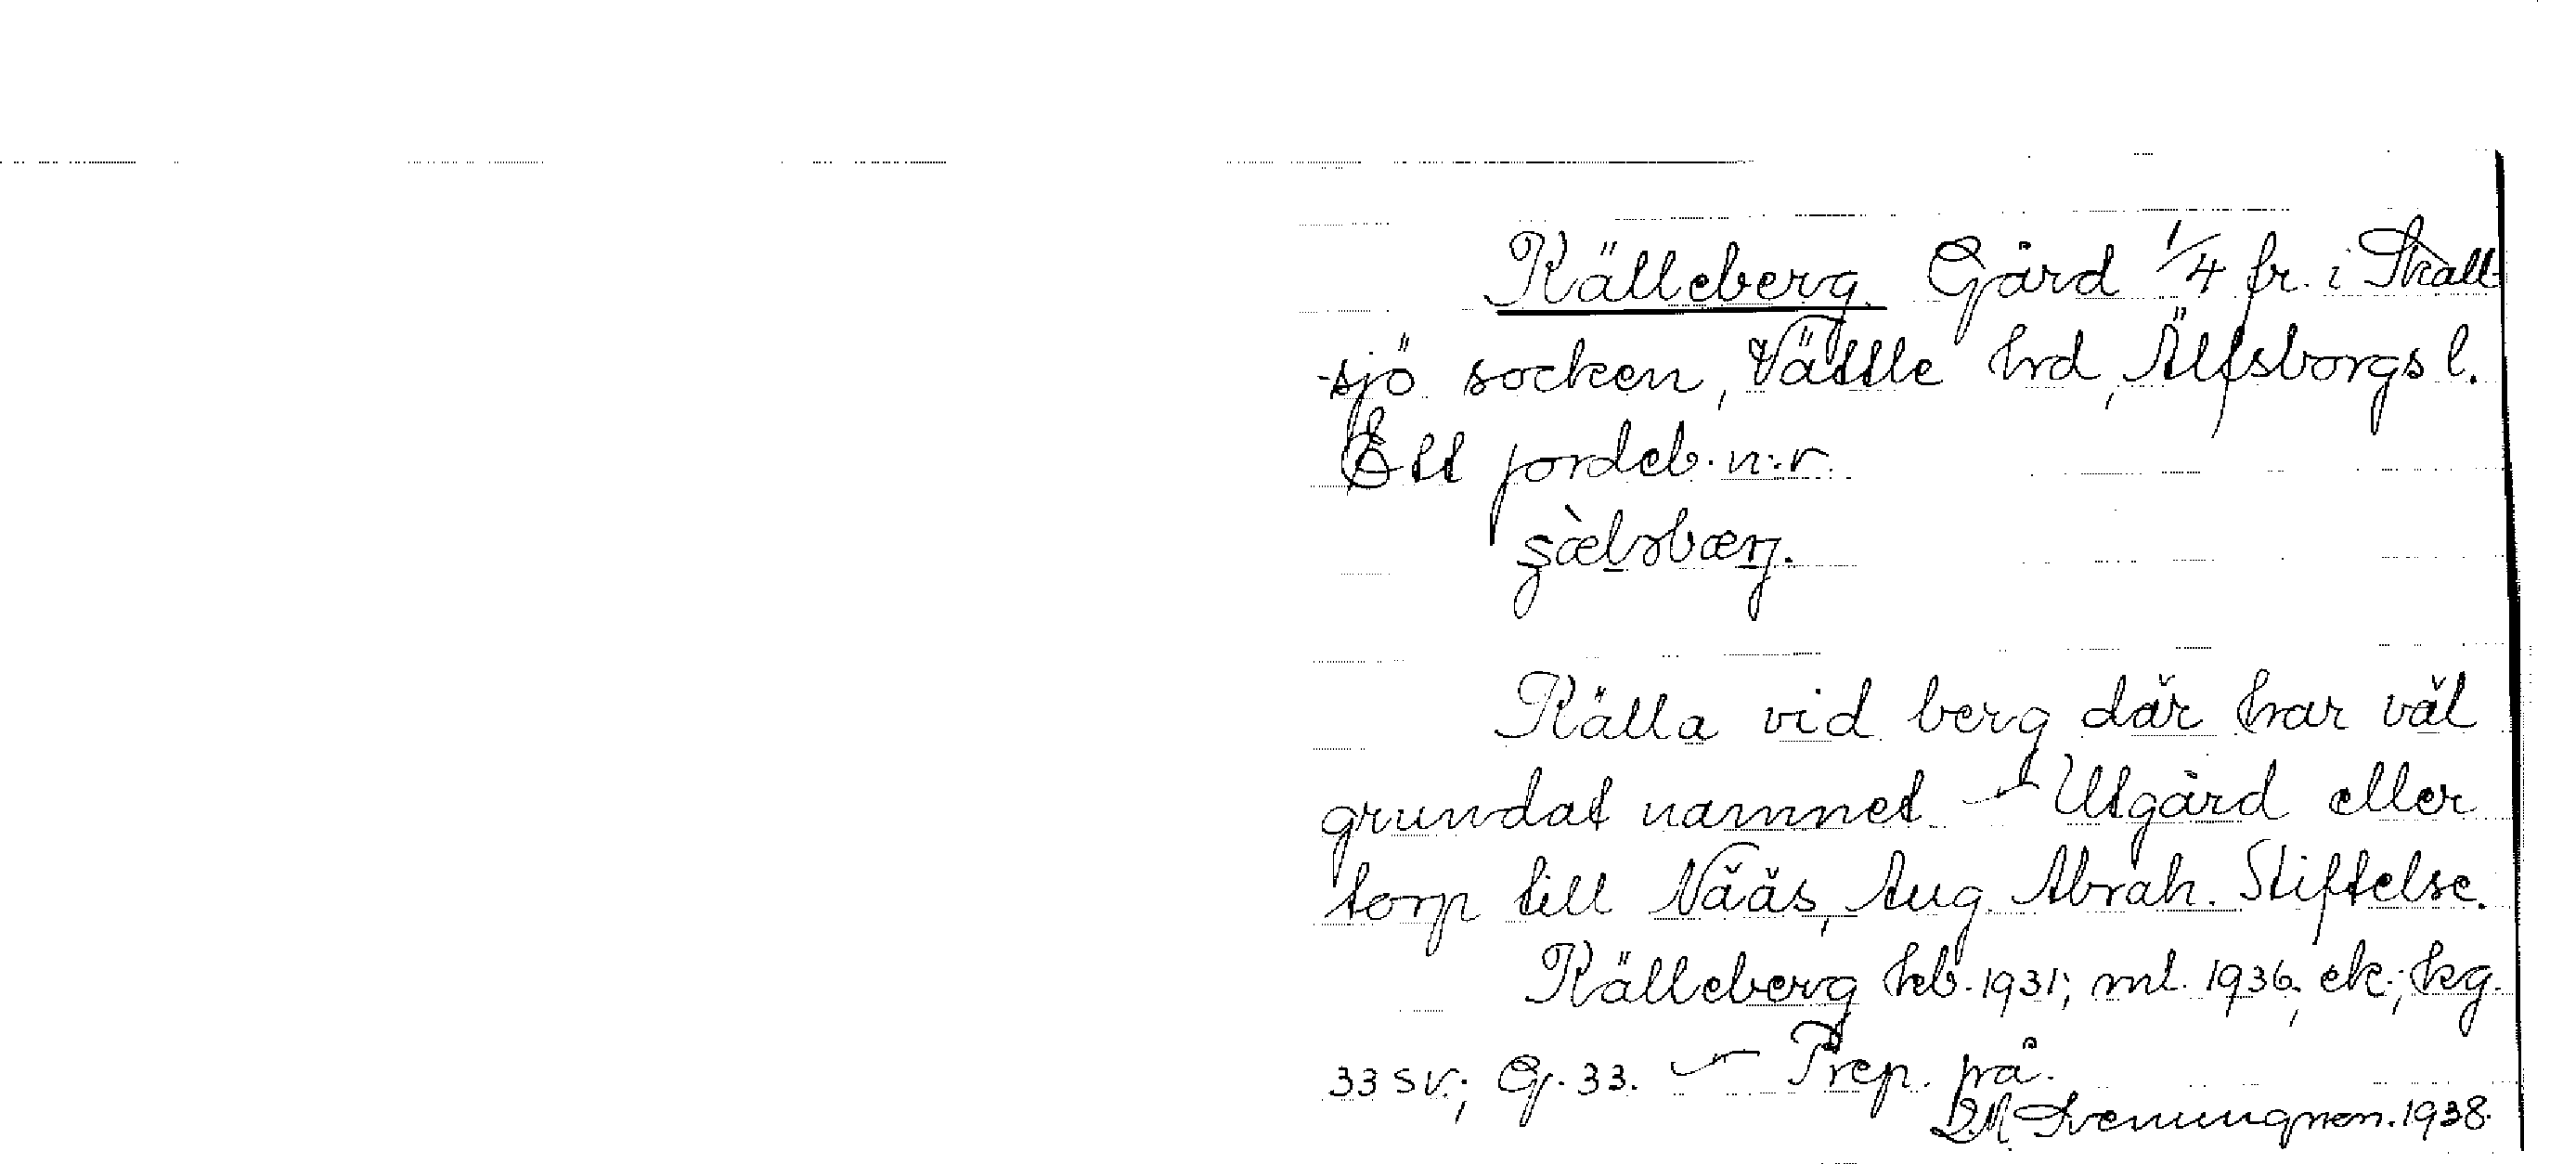 Källeberg. Gård 1/4 fr. i Skall-
sjö socken, Vättle hrd, Älfsborgs l.
Ett jordeb. n:r.
Källa vid berg där har väl
grundat namnet - Utgård eller
torp till Nääs, Aug. Abrah. Stiftelse.
Källeberg hb. 1931; ml. 1936, ek.; kg.
33 SV.; Gj. 33. - Prep. på.
1938.